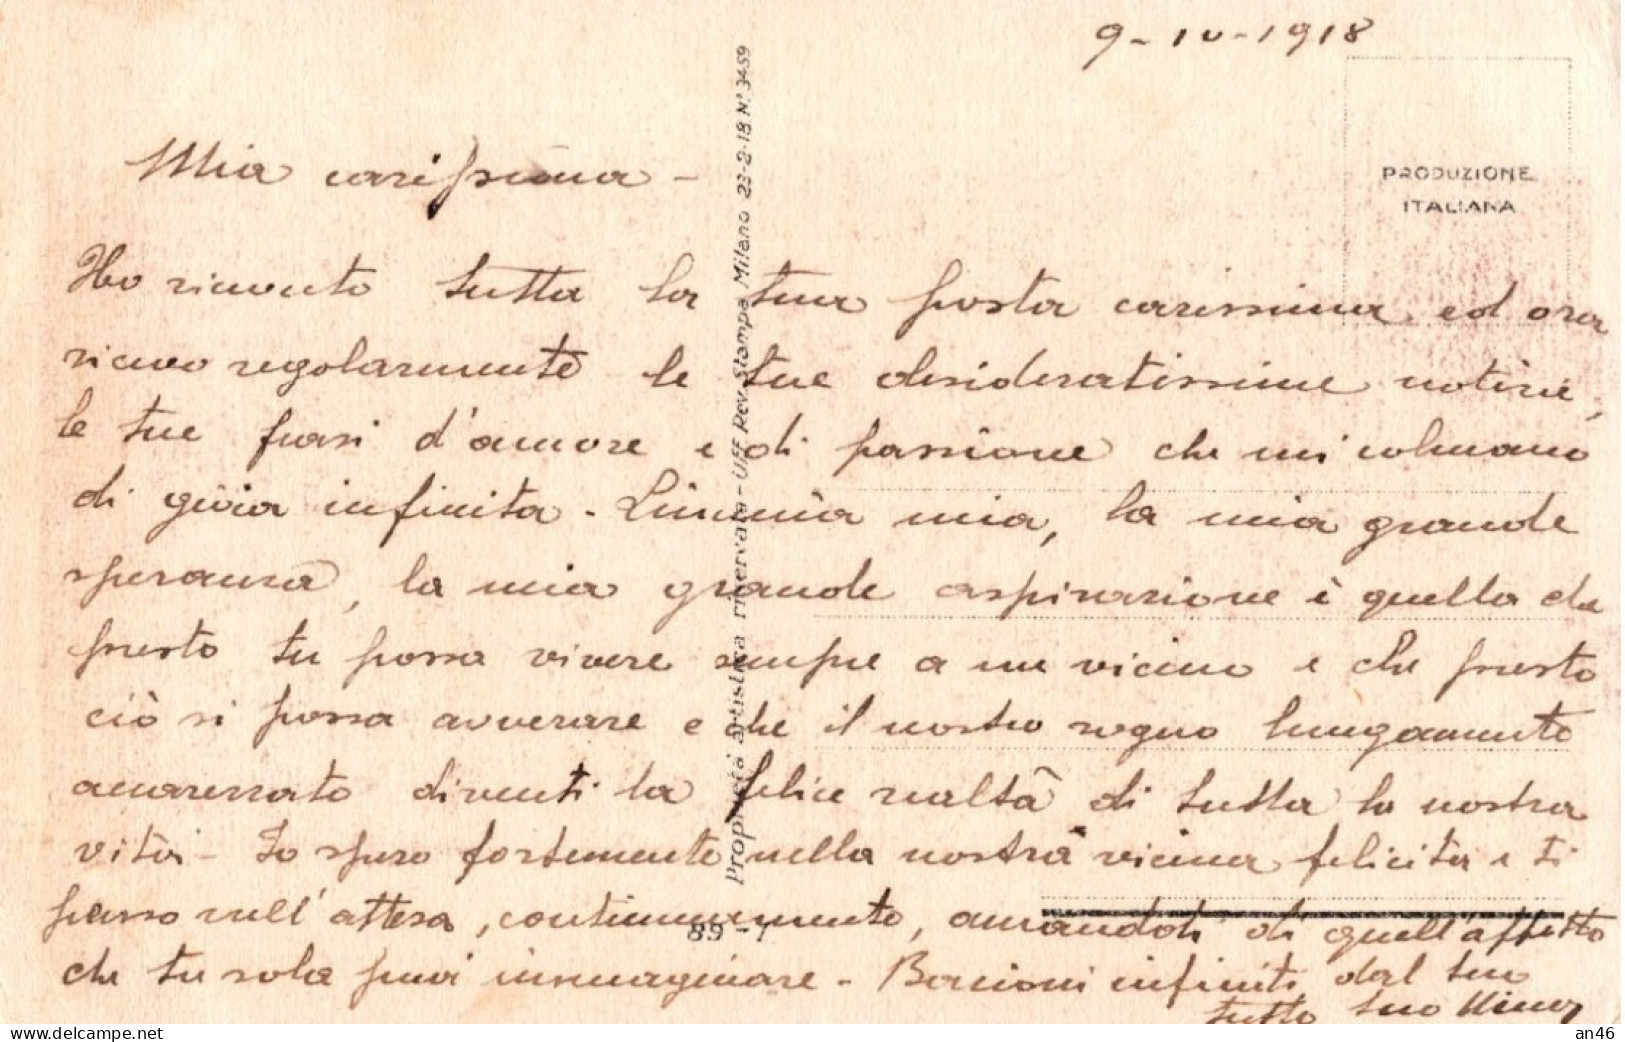 9-10-1918
PRODUZIONE
ITALIANA
Mia carissima -
Ho ricevuto tutta la tua posta carissima ed ora
ricevo regolarmente le tue desideratissime notizie,
le tue frasi d'amore e di passione che mi colmano
di gioia infinita - mia, la mia grande
speranza, la mia grande aspirazione è quella che
presto tu possa vivere sempre a me vicino e che presto
ciò si possa avverare e che il nostro sogno lungamente
accarezzato diventi la felice realtà di tutta la nostra
vita - Io spero fortemente nella nostra vicina felicità e ti
penso nell'attesa, continuamente, amandoti di quell'affetto
che tu sola puoi immaginare - Bacioni infiniti dal tuo
tutto tuo
Proprietà artistica riservata - Uff. Rev. Stampa Milano 23-2-18 N.º 3459
89 - 1
an46